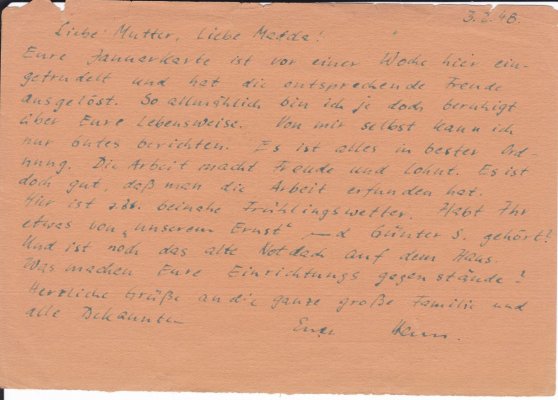 3.2.48.
Liebe Mutter, Liebe Madda!
Eure Januarkarte ist vor einer Woche hier ein-
getrudelt und hat die entsprechende Freude
ausgelöst. So allmählich bin ich je doch beruhigt
über Eure Lebensweise. Von mir selbst kann ich
nur Gutes berichten. Es ist alles in bester Ord
nung. Die Arbeit macht Freude und lohnt. Es ist
doch gut, daß man die Arbeit erfunden hat.
Hier ist z.Zt. beinahe Frühlingswetter. Habt Ihr
etwas von „unserem Ernst" Günter S. gehört?
Und ist noch das alte Notdach auf dem Haus.
Was machen Eure Einrichtungs gegenstände?
Herzliche Grüße an die ganze große Familie und
alle Bekannten Euer